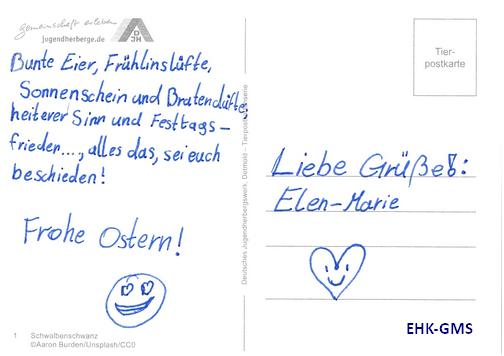 gemeinschaft erleben
jugendherberge.de
DJH
Bunte Eier, Frühlinslüfte,
Sonnenschein und Bratendüfte,
heiterer Sinn und Festtags-
frieden..., alles das, sei euch
beschieden!
Frohe Ostern!
1 Schwalbenschwanz
©Aaron Burden/Unsplash/CC0
Deutsches Jugendherbergswerk, Detmold - Tierpostkartenserie
Tier-
postkarte
Liebe Grüße!:
Elen-Marie
EHK-GMS